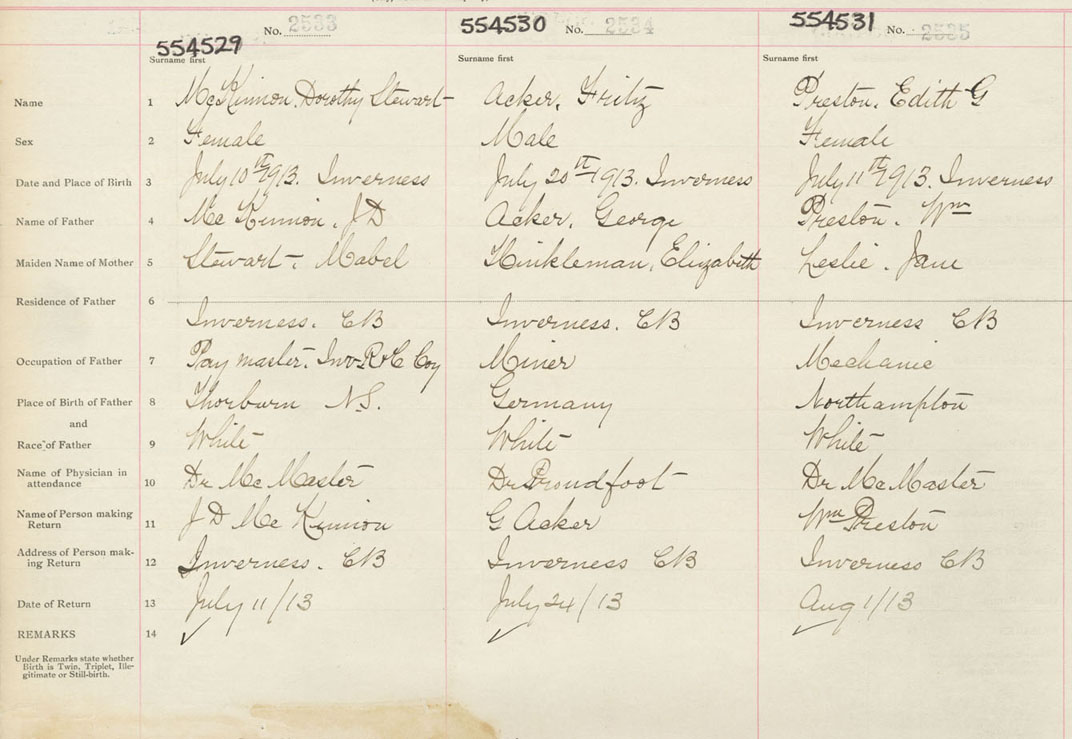 554529 No. 2533 554530 No. 2534 554531 No. 2535
Surname first Surname first Surname first
Name 1 McKinnon, Dorothy Stewart Acker, Fritz Preston, Edith G
Sex 2 Female Male Female
Date and Place of Birth 3 July 10th 1913. Inverness July 20th 1913. Inverness July 11th 1913. Inverness
Name of Father 4 McKinnon, J D Acker, George Preston, Wm
Maiden Name of Mother 5 Stewart, Mabel Hinkleman, Elizabeth Leslie, Jane
Residence of Father 6
Inverness. CB Inverness. CB Inverness CB
Occupation of Father 7 Pay master. Inv R & C Coy Miner Mechanic
Place of Birth of Father 8 Thorburn N.S. Germany Northampton
and
Race of Father 9 White White White
Name of Physician in attendance 10 Dr McMaster Dr Proudfoot Dr McMaster
Name of Person making Return 11 J D McKinnon G Acker Wm Preston
Address of Person making Return 12 Inverness. CB Inverness CB Inverness CB
Date of Return 13 July 11/13 July 24/13 Aug 1/13
REMARKS 14 ✓ ✓ ✓
Under Remarks state whether
Birth is Twin, Triplet, Ille-
gitimate or Still-birth.